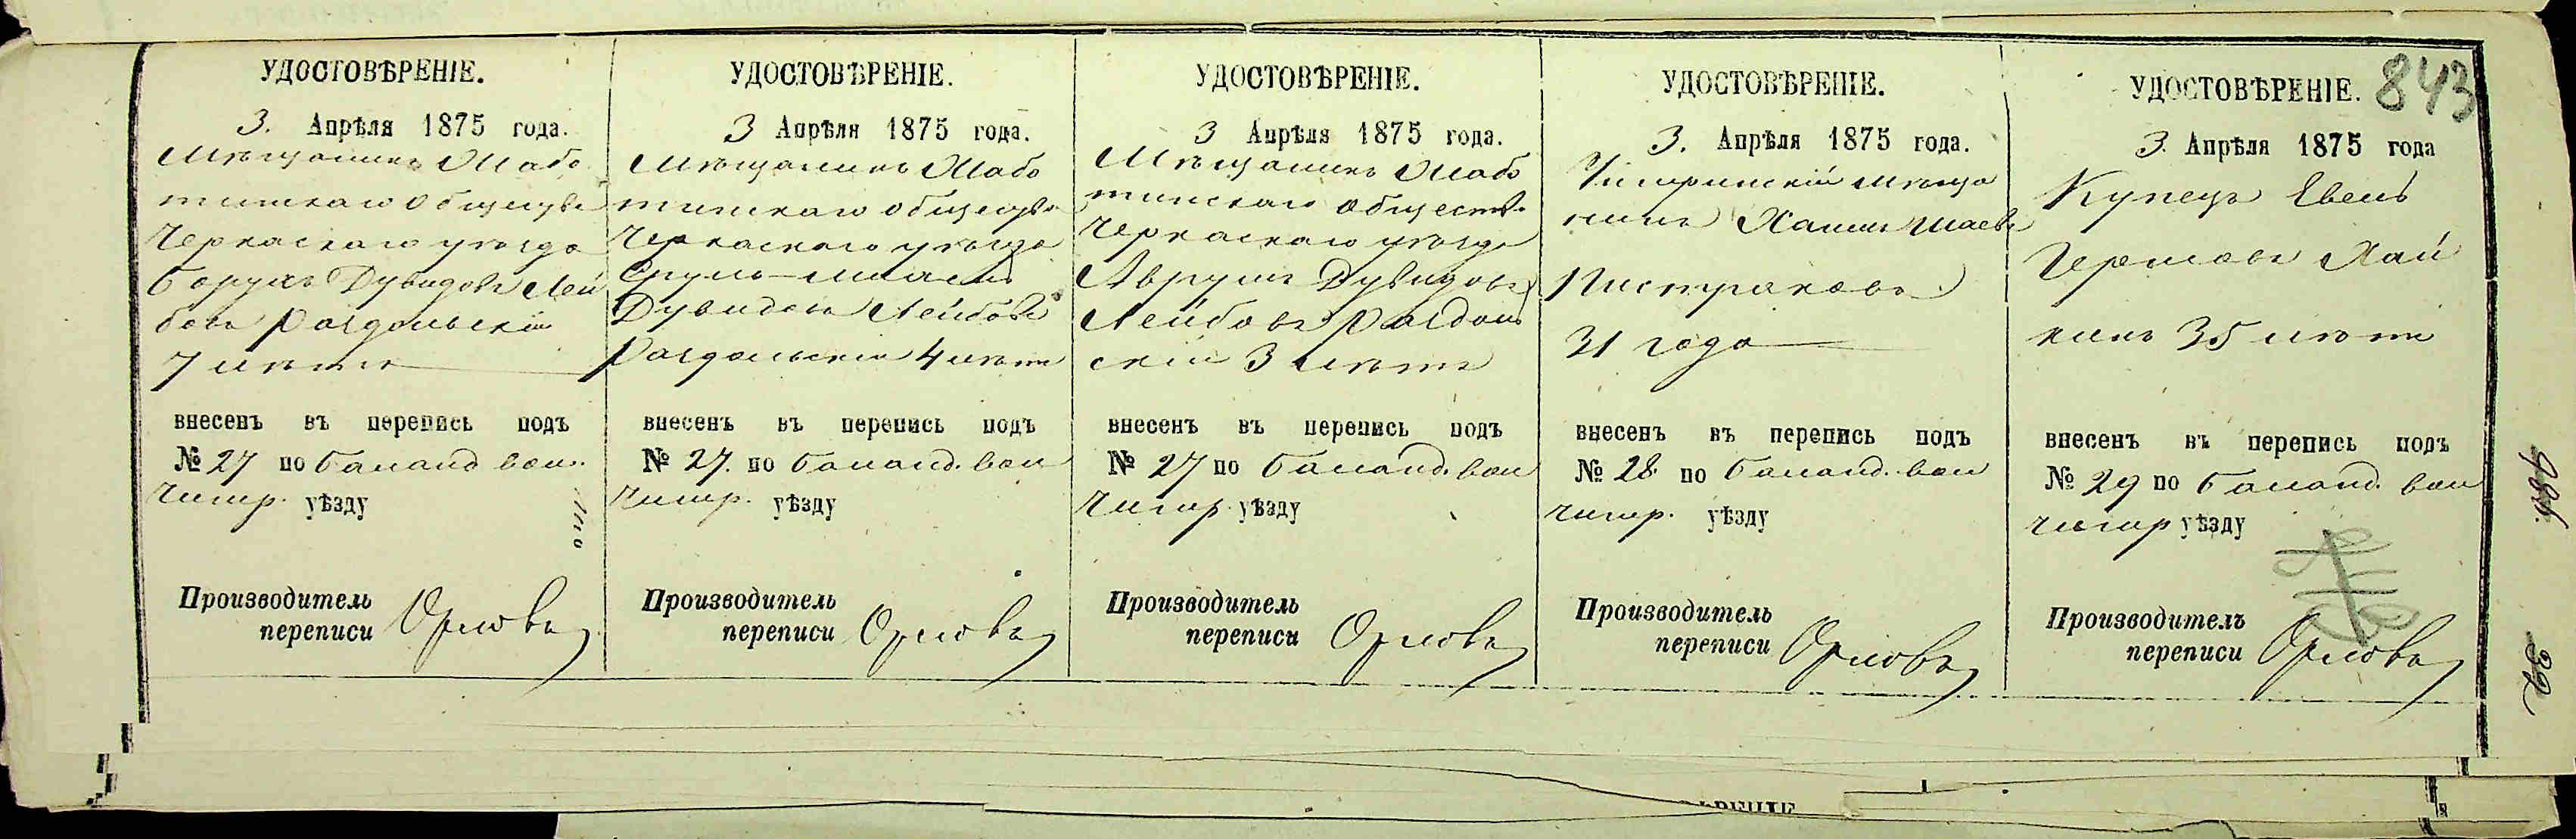 843
УДОСТОВѢРЕНІЕ.
3. Апрѣля 1875 года.
Мѣщанинъ Жабо
тинскаго общества
Черкаскаго уѣзда
Борухъ Дувидовъ Лей
бовъ Раздольскій
7 лѣтъ
внесенъ въ перепись подъ
№ 27 по Баланд. вол.
Чигир. уѣзду
Производитель
переписи Орловъ
УДОСТОВѢРЕНІЕ.
3 Апрѣля 1875 года.
Мѣщанинъ Жабо
тинскаго общества
Черкаскаго уѣзда
Срулъ
Дувидовъ Лейбовъ
Раздольскій 4 лѣтъ
внесенъ въ перепись подъ
№ 27. по Баланд. вол
Чигир. уѣзду
Производитель
переписи Орловъ
УДОСТОВѢРЕНІЕ.
3 Апрѣля 1875 года.
Мѣщанинъ Жабо
тинскаго общества
Черкаскаго уѣзда
Аврумъ Дувидовъ
Лейбовъ Раздоль
скій 3 лѣтъ
внесенъ въ перепись подъ
№ 27 по Баланд. вол
Чигир. уѣзду
Производитель
переписи Орловъ
УДОСТОВѢРЕНІЕ.
3. Апрѣля 1875 года.
Чигиринскій мѣща
нинъ Хаимъ Шаевъ
Пистраковъ
31 года
внесенъ въ перепись подъ
№ 28. по Баланд. вол
Чигир. уѣзду
Производитель
переписи Орловъ
УДОСТОВѢРЕНІЕ.
3. Апрѣля 1875 года
Купецъ
Гершовъ Хай
кинъ 35 лѣтъ
внесенъ въ перепись подъ
№ 29 по Баланд. вол
Чигир уѣзду
Производитель
переписи Орловъ